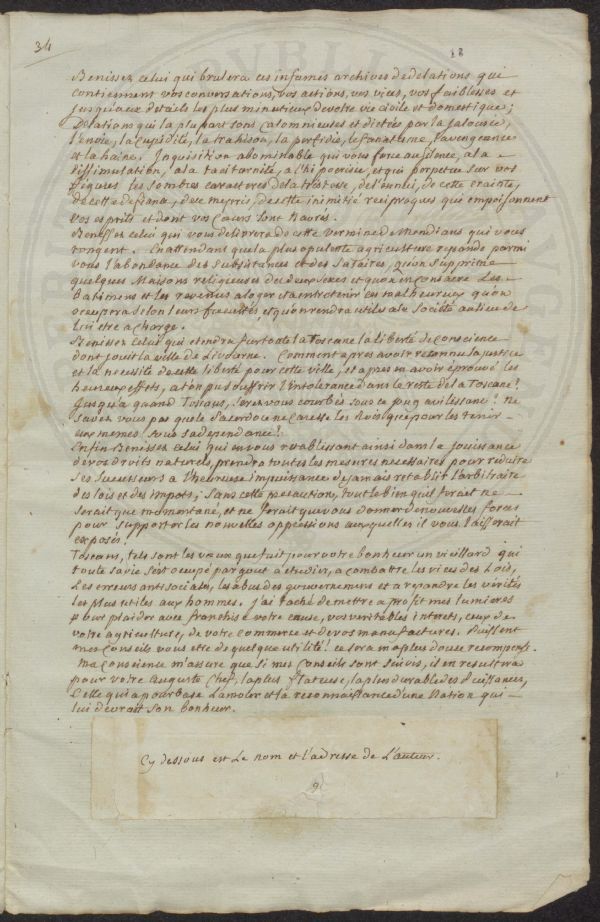 34
18
Benissez celui qui brulera ces infames archives de delations qui
contiennent vos conversations, vos actions, vos vices, vos faiblesses et
jusqu'aux details les plus minutieux de votre vie civile et domestique;
Delations qui la plupart sont calomnieuses et dictées par la Jalousie,
l'Envie, la Cupidité, la trahison, la perfidie, le fanatisme, la vengeance
et la haine. Inquisition abominable qui vous force au silence, a la
dissimulation, a la taciturnité, a l'hipocrisie, et qui perpetue sur vos
figures les sombres caracteres de la tristesse, de l'ennui, de cette crainte,
de cette dedain, de ce mepris, de cette inimitié reciproques qui empoisonnent
vos esprits et dont vos Cœurs sont navrés.
Benissez celui qui vous delivrera de cette vermine de Mendians qui vous
rongent. En attendant que la plus opulette agriculture repande parmi
vous l'abondance des subsistances et des salaires, qu'on supprime
quelques Maisons religieuses des deux sexes et qu'on en consacre Les
Batimens et les revenus a loger et a entretenir ces malheureux qu'on
occupera selon leurs facultés et qu'on rendra utiles a la Société au lieu de
lui etre a charge.
Benissez celui qui etendra sur toute la Toscane la liberté de conscience
dont jouit la ville de Livourne. Comment apres avoir reconnu la justice
et la necessité de cette liberté pour cette ville, et apres en avoir éprouvé les
heureux effets, a t'on pu souffrir l'intolerance dans le reste de la Toscane?
Jusqu'a quand Toscans, serez vous courbés sous ce joug avilissant? ne
savez vous pas que le Sacerdoce ne caresse les Rois que pour les tenir
eux memes sous sa dependance?
Enfin Benissez celui qui en vous retablissant ainsi dans la jouissance
de vos droits naturels, prendra toutes les mesures necessaires pour reduire
ses successeurs a l'heureuse impuissance de jamais retablir l'arbitraire
des lois et des impots; sans cette precaution, tout le bien qu'il ferait ne
serait que momentané, et ne ferait que vous donner de nouvelles forces
pour supporter les nouvelles oppressions auxquelles il vous laisserait
exposés!
Toscans, tels sont les vœux que fait pour votre bonheur un vieillard qui
toute sa vie s'est occupé partout a etudier, a combattre les vices des Lois,
Les erreurs anti sociales, les abus des gouvernemens et a repandre les vérités
les plus utiles aux hommes. j'ai taché de mettre a profit mes lumieres
pour plaider avec franchise votre cause, vos veritables interets, ceux de
votre agriculture, de votre commerce et de vos manufactures. Puissent
mes Conseils vous etre de quelque utilité! ce sera ma plus douce recompense.
Ma Conscience m'assure que si mes Conseils sont suivis, il en resultera
pour votre Auguste Chef, la plus flateuse, la plus durable des Puissances,
Celle qui a pour base l'amour et la reconnaissance d'une Nation qui
lui devrait son bonheur.
Cy dessous est Le nom et l'adresse de L'auteur.